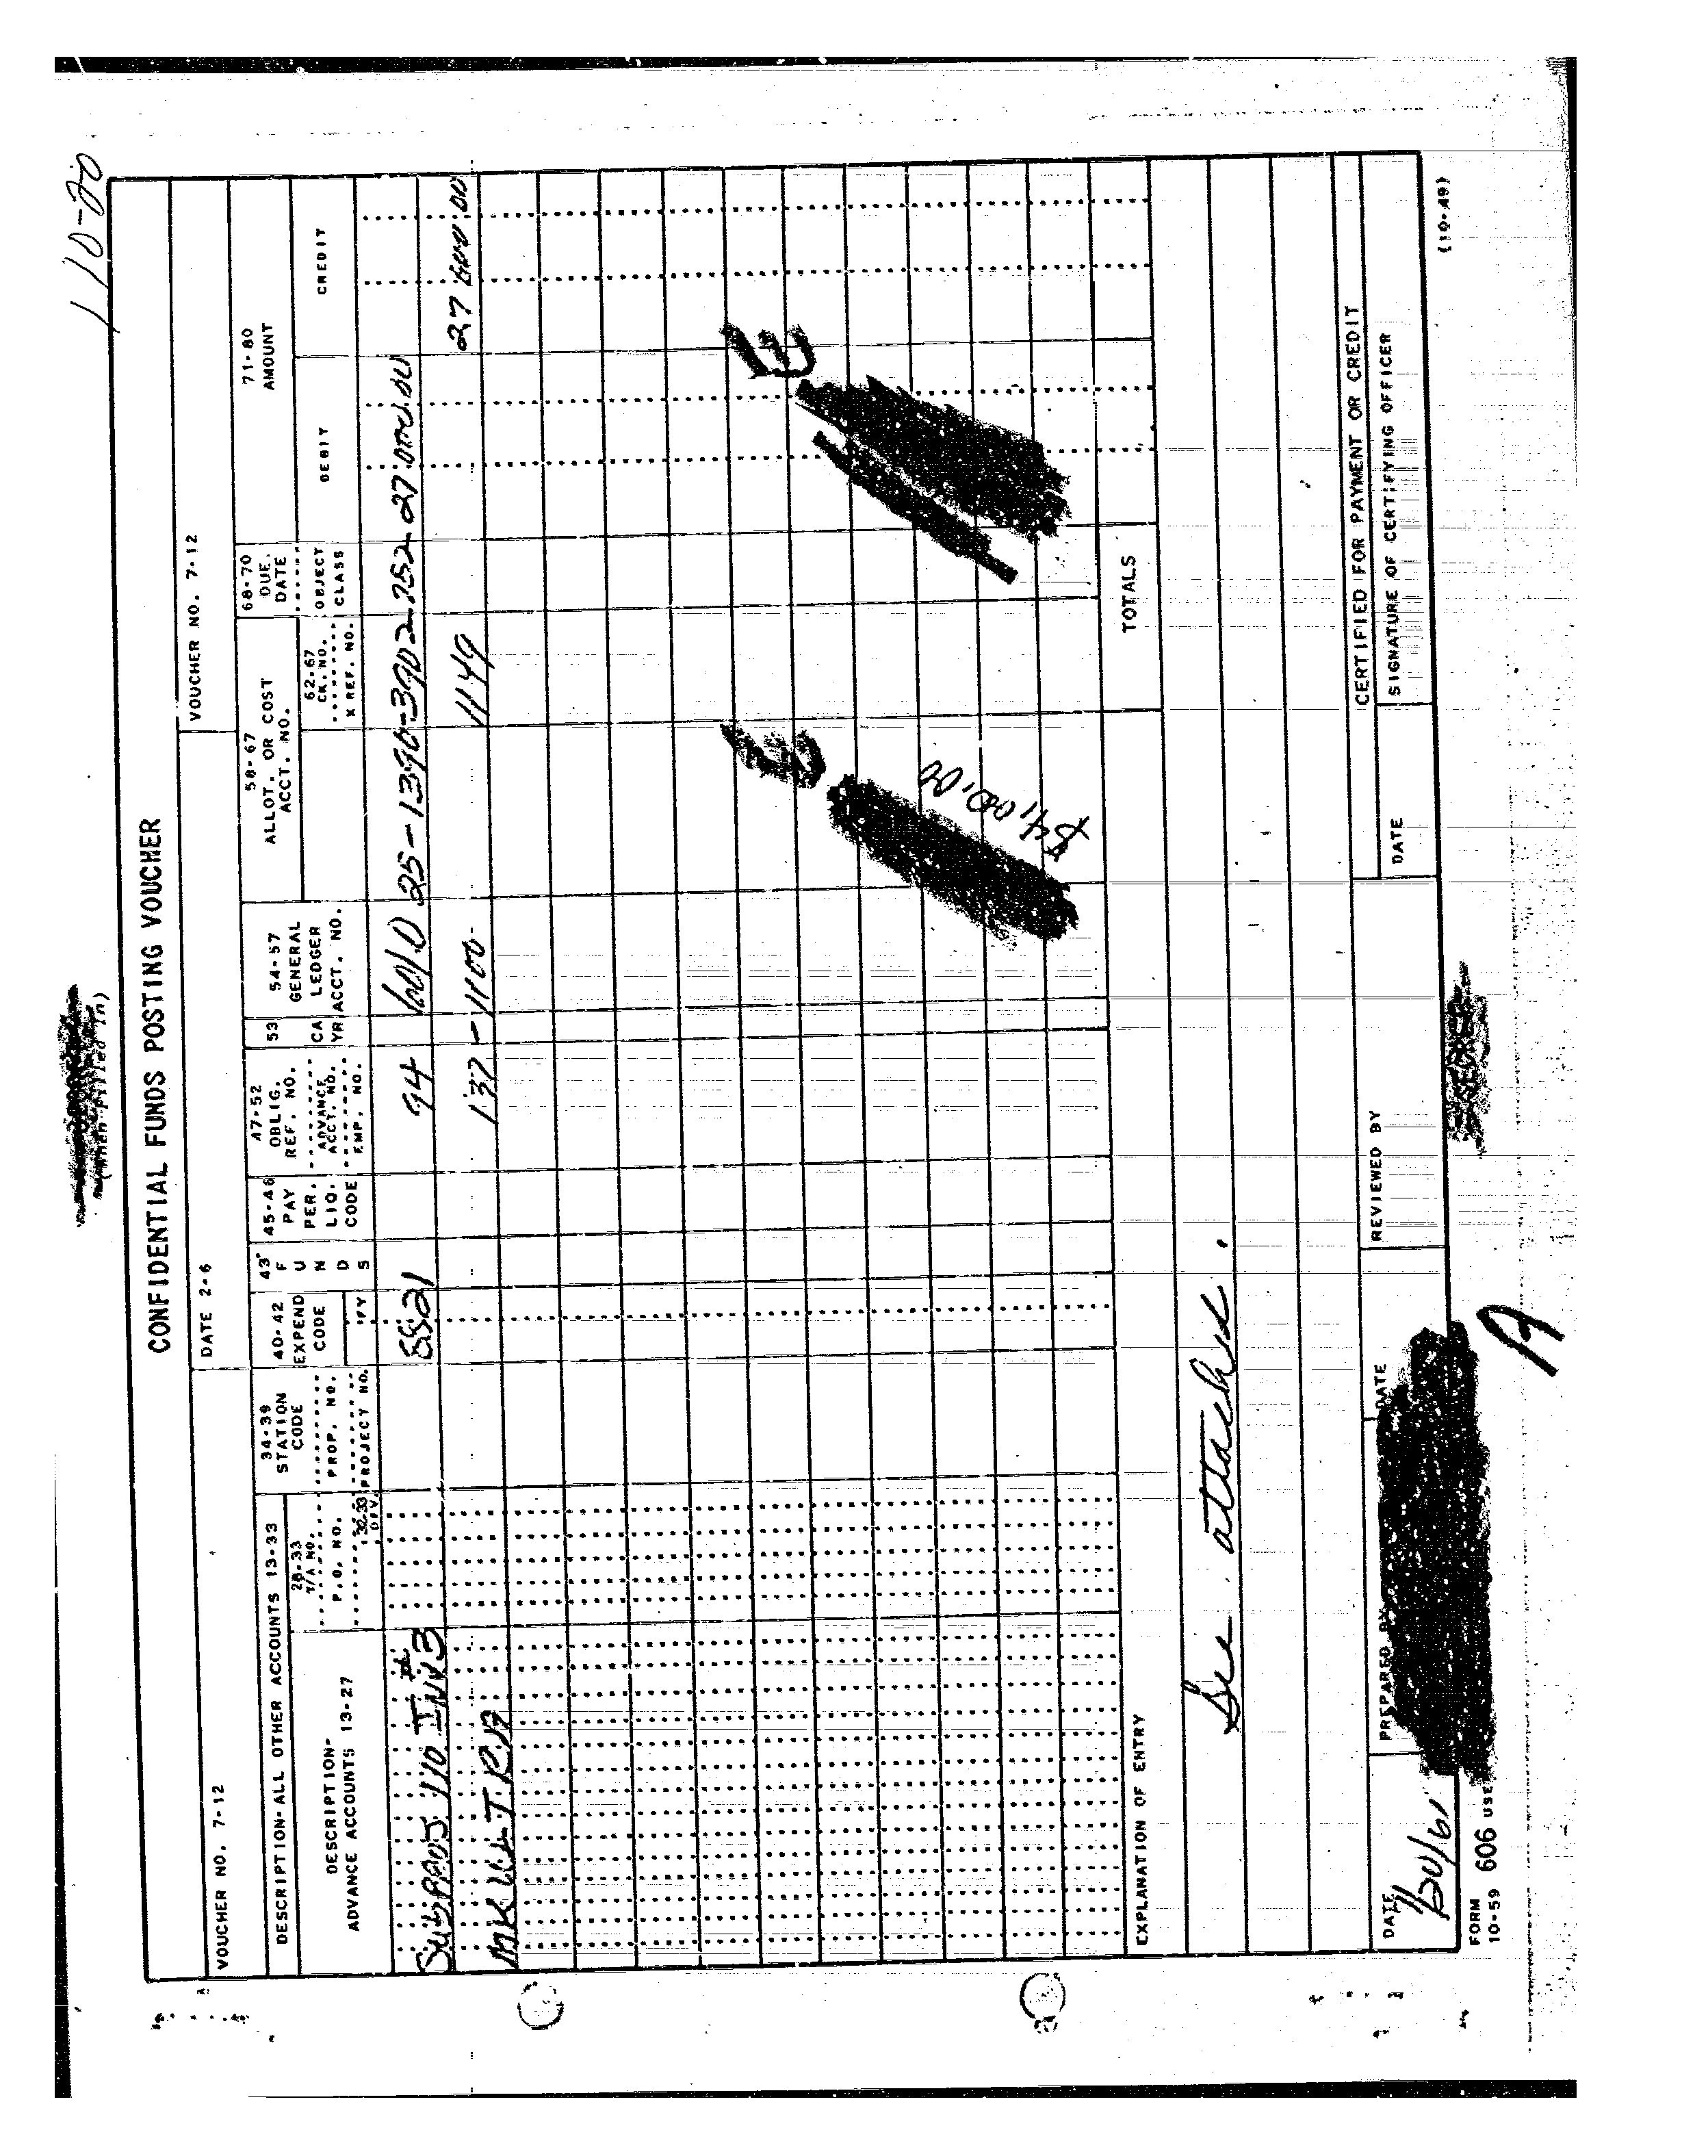 110-20
(When Filled In)
CONFIDENTIAL FUNDS POSTING VOUCHER
VOUCHER NO. 7-12
DATE 2-6
VOUCHER NO. 7-12
DESCRIPTION-ALL OTHER ACCOUNTS 13-33
DESCRIPTION-
ADVANCE ACCOUNTS 13-27
28-33
T/A NO.
P.O. NO.
32-33
DIV.
34-39
STATION
CODE
PROP. NO.
PROJECT NO.
40-42
EXPEND
CODE
FY
43
F
U
N
D
S
45-46
PAY
PER.
LIQ.
CODE
47-52
OBLIG.
REF. NO.
ADVANCE
ACCT. NO.
EMP. NO.
53
CA
YR
54-57
GENERAL
LEDGER
ACCT. NO.
58-67
ALLOT. OR COST
ACCT. NO.
62-67
CK. NO.
X REF. NO.
68-70
DUE
DATE
OBJECT
CLASS
71-80
AMOUNT
DEBIT
CREDIT
Subproj 110 I #
INV 3
8821 94 25-1390-3902 252 27
MKULTRA 137 - 1100 1149 27
B
$4,000.00
TOTALS
EXPLANATION OF ENTRY
See attached.
CERTIFIED FOR PAYMENT OR CREDIT
DATE
PREPARED BY
DATE
REVIEWED BY
DATE
SIGNATURE OF CERTIFYING OFFICER
FORM
10-59
606
USE
SECRET
(10-49)
A